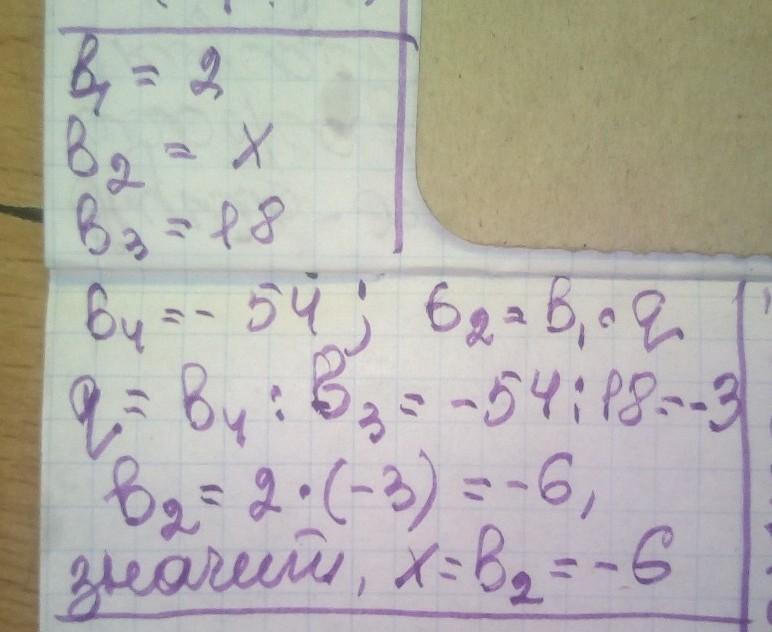 b₁ = 2
b₂ = x
b₃ = 18
b₄ = - 54; b₂ = b₁ · q
q = b₄ : b₃ = -54 : 18 = -3
b₂ = 2 · (-3) = -6,
значит, x = b₂ = -6